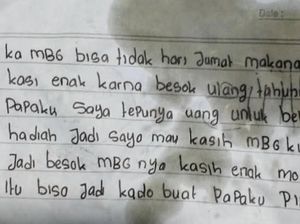 Date:
ka mBG bisa tidak hari Jumat makana
kasi enak karna besok ulang tahuh
PaPaku saya tepunya uang untuk be
hadiah Jadi saya mau kasih mBG k
Jadi besok mBG nya kasih enak mo
itu bisa Jadi kado buat PaPaku Pi